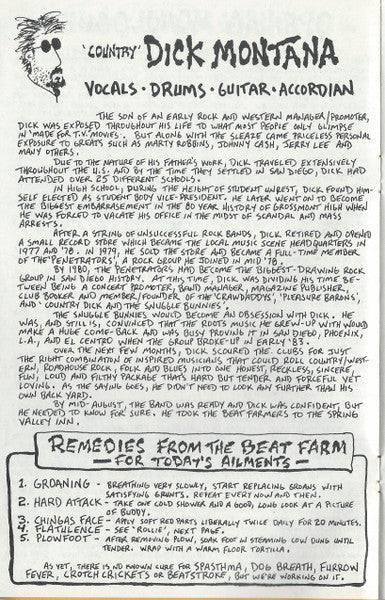 'COUNTRY' DICK MONTANA
VOCALS • DRUMS • GUITAR • ACCORDIAN
THE SON OF AN EARLY ROCK AND WESTERN MANAGER/PROMOTER,
DICK WAS EXPOSED THROUGHOUT HIS LIFE TO WHAT MOST PEOPLE ONLY GLIMPSE
IN 'MADE FOR T.V.' MOVIES. BUT ALONG WITH THE SLEAZE CAME PRICELESS PERSONAL
EXPOSURE TO GREATS SUCH AS MARTY ROBBINS, JOHNNY CASH, JERRY LEE AND
MANY OTHERS.
DUE TO THE NATURE OF HIS FATHER'S WORK, DICK TRAVELED EXTENSIVELY
THROUGHOUT THE U.S. AND BY THE TIME THEY SETTLED IN SAN DIEGO, DICK HAD
ATTENDED OVER 25 DIFFERENT SCHOOLS.
IN HIGH SCHOOL, DURING THE HEIGHT OF STUDENT UNREST, DICK FOUND HIM-
SELF ELECTED AS STUDENT BODY VICE-PRESIDENT. HE LATER WENT ON TO BECOME
THE BIGGEST EMBARRASEMENT IN THE 80 YEAR HISTORY OF GROSSMONT HIGH WHEN
HE WAS FORCED TO VACATE HIS OFFICE IN THE MIDST OF SCANDAL AND MASS
ARRESTS.
AFTER A STRING OF UNSUCCESSFUL ROCK BANDS, DICK RETIRED AND OPENED
A SMALL RECORD STORE WHICH BECAME THE LOCAL MUSIC SCENE HEADQUARTERS IN
1977 AND '78. IN 1979, HE SOLD THE STORE AND BECAME A FULL-TIME MEMBER
OF THE 'PENETRATORS', A ROCK GROUP HE JOINED IN MID '78.
BY 1980, THE PENETRATORS HAD BECOME THE BIGGEST-DRAWING ROCK
GROUP IN SAN DIEGO HISTORY. AT THIS TIME, DICK WAS DIVIDING HIS TIME BE-
TWEEN BEING A CONCERT PROMOTER, BAND MANAGER, MAGAZINE PUBLISHER,
CLUB BOOKER AND MEMBER/FOUNDER OF THE 'CRAWDADDYS', 'PLEASURE BARONS',
AND 'COUNTRY DICK AND THE SNUGGLE BUNNIES'.
THE SNUGGLE BUNNIES WOULD BECOME AN OBSESSION WITH DICK. HE
WAS, AND STILL IS, CONVINCED THAT THE ROOTS MUSIC HE GREW-UP WITH WOULD
MAKE A HUGE COME-BACK AND WAS BUSY PROVING IT IN SAN DIEGO, PHOENIX,
L.A., AND EL CENTRO WHEN THE GROUP BROKE-UP IN EARLY '83.
OVER THE NEXT FEW MONTHS, DICK SCOURED THE CLUBS FOR JUST
THE RIGHT COMBINATION OF INSPIRED MUSICIANS THAT COULD ROLL COUNTRY/WEST-
ERN, ROADHOUSE ROCK, FOLK AND BLUES INTO ONE HONEST, RECKLESS, SINCERE,
FUN, LOUD AND FILTHY PACKAGE THAT'S HARD BUT TENDER AND FORCEFUL YET
LOVING. AS THE SAYING GOES, HE DIDN'T NEED TO LOOK ANY FURTHER THAN HIS
OWN BACK YARD.
BY MID-AUGUST, THE BAND WAS READY AND DICK WAS CONFIDENT, BUT
HE NEEDED TO KNOW FOR SURE. HE TOOK THE BEAT FARMERS TO THE SPRING
VALLEY INN.
REMEDIES FROM THE BEAT FARM
— FOR TODAY'S AILMENTS —
1. GROANING - BREATHING VERY SLOWLY, START REPLACING GROANS WITH
SATISFYING GRUNTS. REPEAT EVERY NOW AND THEN.
2. HARD ATTACK - TAKE ONE COLD SHOWER AND A GOOD, LONG LOOK AT A PICTURE
OF BUDDY.
3. CHINGAS FACE - APPLY SOFT RED DARTS LIBERALLY TWICE DAILY FOR 20 MINUTES.
4. FLATULENCE - SEE 'ROLLIE', NEXT PAGE.
5. PLOWFOOT - AFTER REMOVING PLOW, SOAK FOOT IN STEAMING COW DUNG UNTIL
TENDER. WRAP WITH A WARM FLOOR TORTILLA.
AS YET, THERE IS NO KNOWN CURE FOR SPASTHMA, DOG BREATH, FURROW
FEVER, CROTCH CRICKETS OR BEATSTROKE, BUT WE'RE WORKING ON IT.